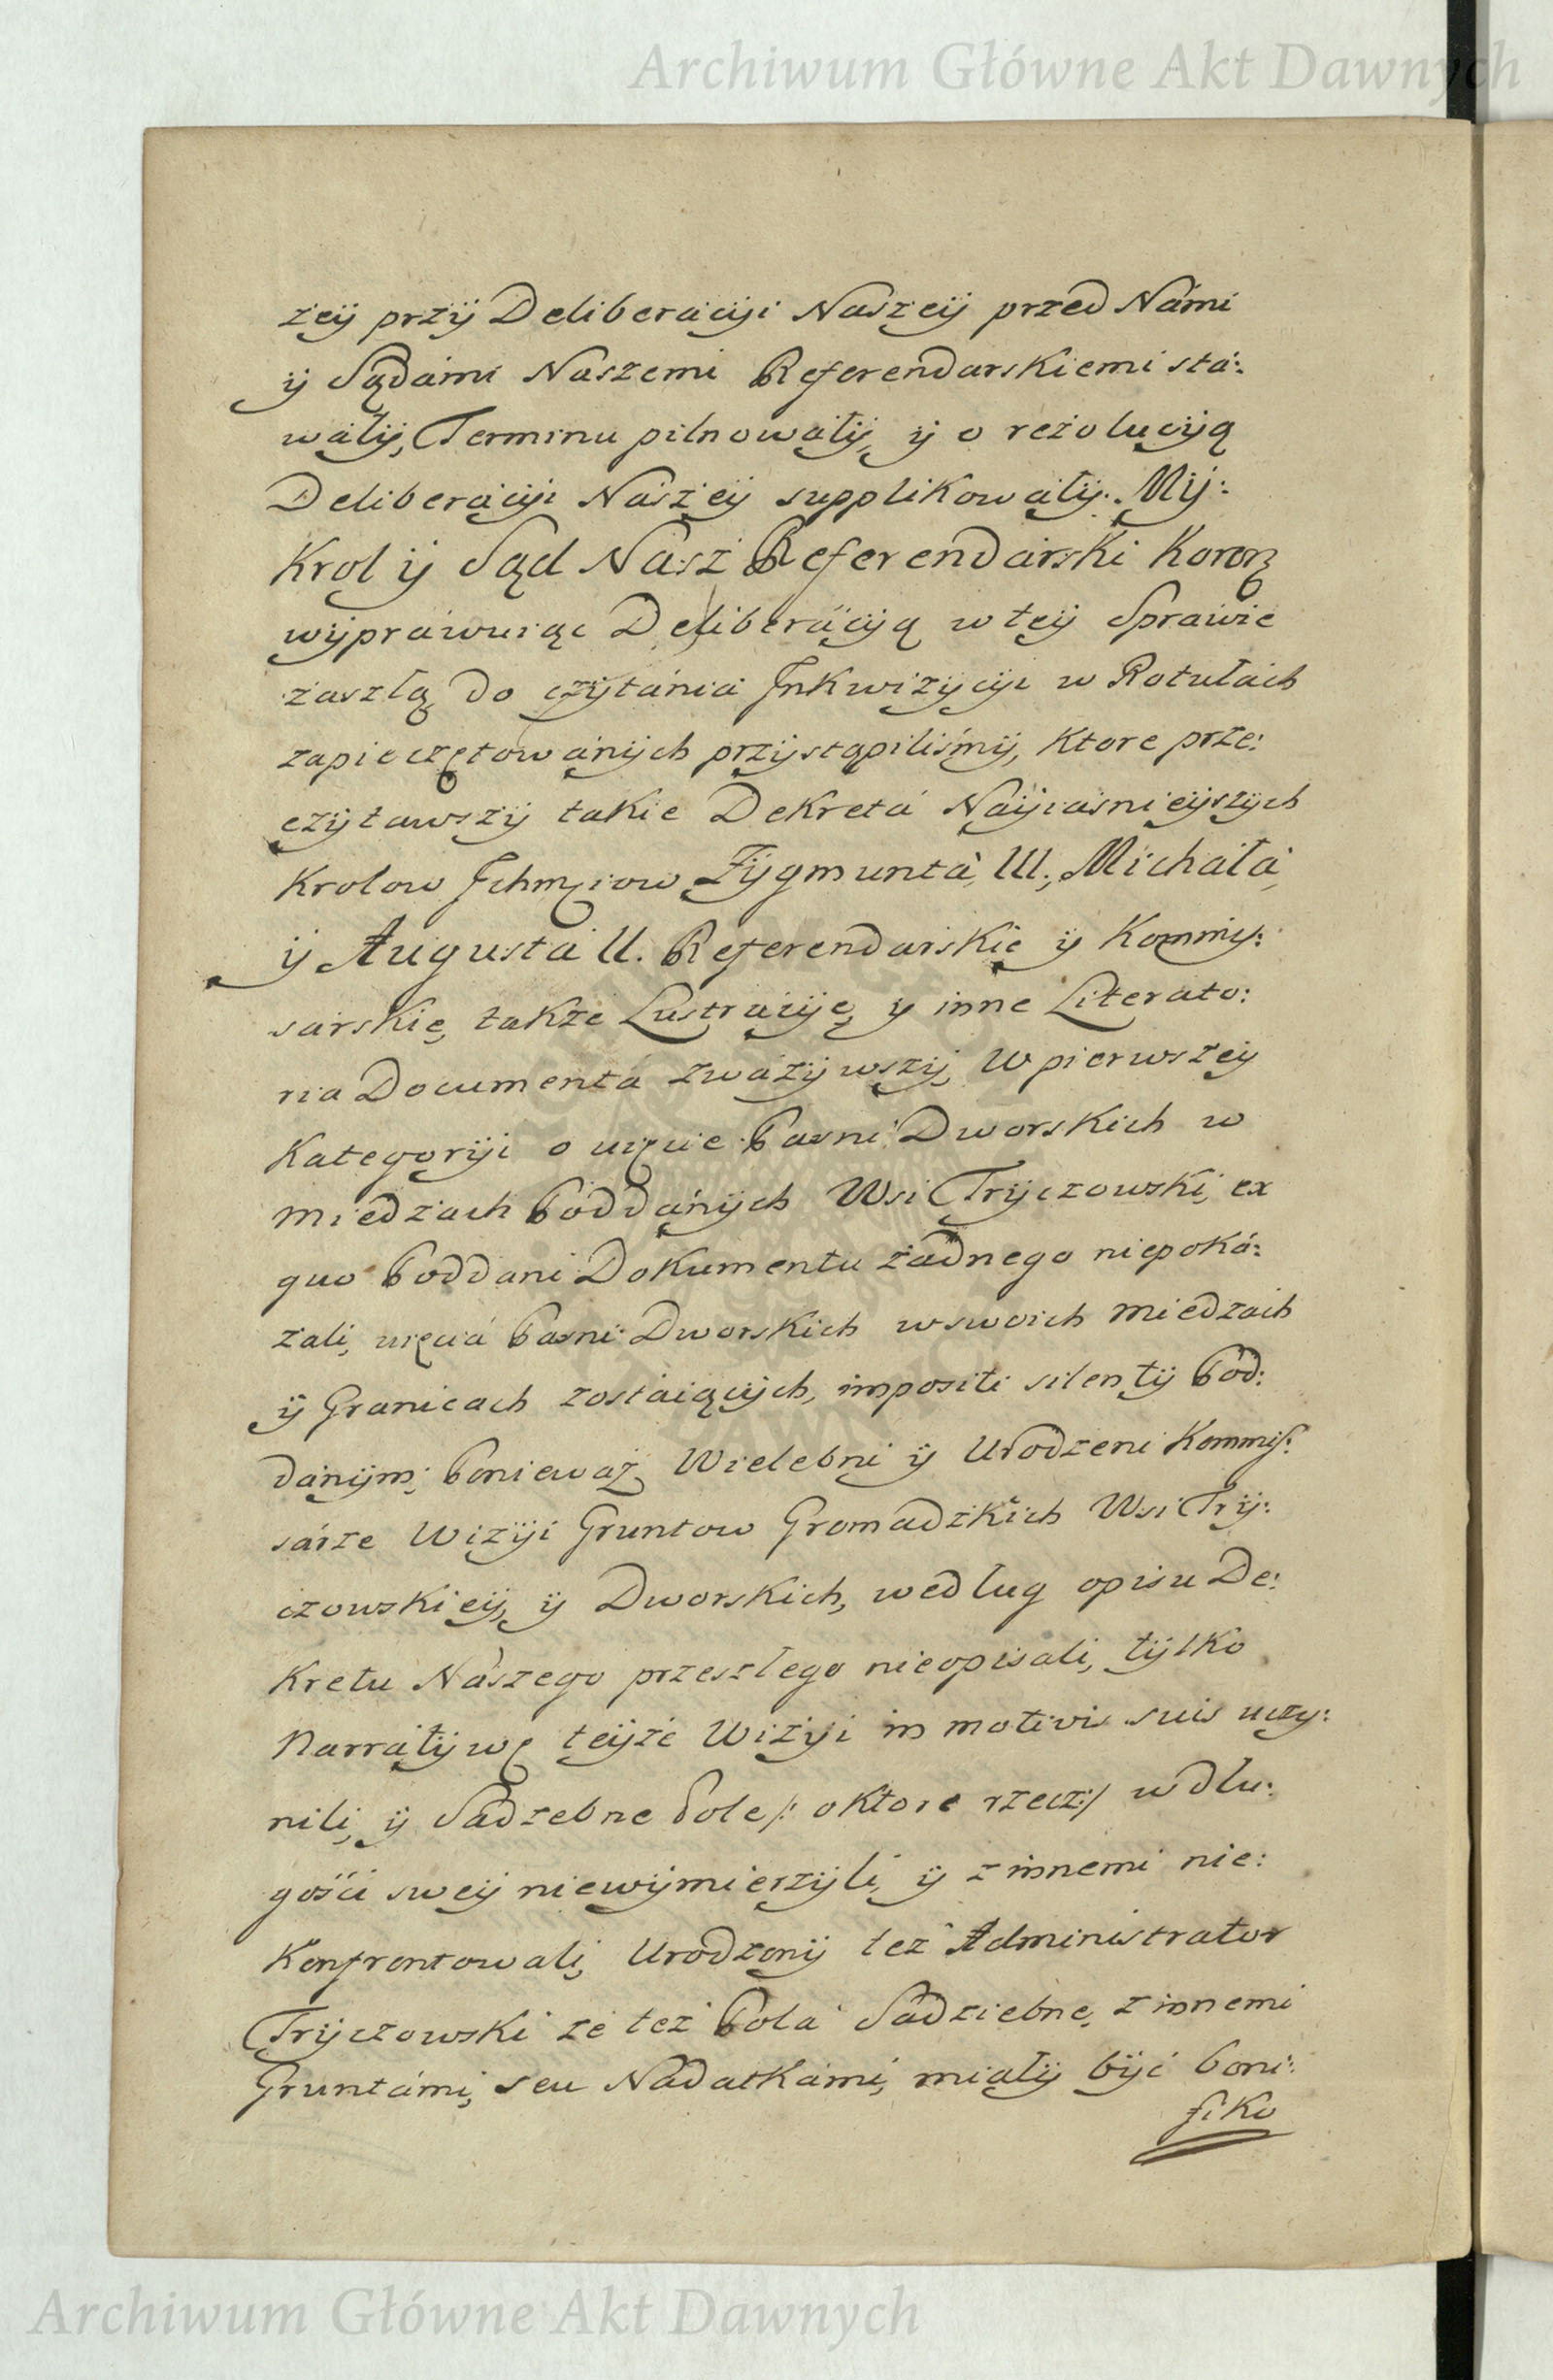 Archiwum Główne Akt Dawnych
zeÿ przÿ Deliberacÿi Naszeÿ przed Námi
ÿ Sądámi Naszemi Referendarskiemi stá:
wałÿ, Terminu pilnowałÿ, ÿ o rezolucÿą
Deliberacÿi Nászeÿ supplikowałÿ. Mÿ:
Krol ÿ Sąd Nász Referendárski Koron
wÿprawuiąc Deliberácÿą w teÿ Sprawie
zaszłą do czÿtánia Inkwizÿcÿi w Rotułach
zapieczętowánÿch przÿstąpiliśmÿ, Ktore prze:
czÿtawszÿ takie Dekretá Naÿiásnieÿszÿch
Krolow Ichmciow Zÿgmuntá III, Michałá
ÿ Augustá II. Referendarskie ÿ Kommis:
sarskie, także Lustracÿę, y inne Literato:
ria Documentá zwáżÿwszÿ, W pierwszeÿ
Kategorÿi o uięcie Pasni Dworskich w
miedzach Poddánÿch Wsi Trÿczowski, ex
quo Poddani Dokumentu żadnego niepoká:
zali, uięciá Pasni Dworskich w swoich miedzach
ÿ Granicach zostáiącÿch, impositi silentÿ Pod:
dánÿm; Ponieważ Wielebni ÿ Urodzeni Kommis:
sárze Wizÿi Gruntow Gromadzkich Wsi Trÿ:
czowskieÿ, ÿ Dworskich, według opisu De:
Kretu Nászego przeszłego nieopisali, tÿlko
Narratÿwę teÿże Wizÿi in motivis suis uczy:
nili, ÿ Sadzebne Pole /: o Ktore rzecz :/ w dłu:
gości sweÿ niewÿmierzÿli, ÿ z innemi nie:
Konfrontowali, Urodzonÿ też Administrator
Trÿczowski że też Polá Sadziebne, z innemi
Gruntámi, seu Nadatkámi, miałÿ bÿć boni:
fiko
Archiwum Główne Akt Dawnych